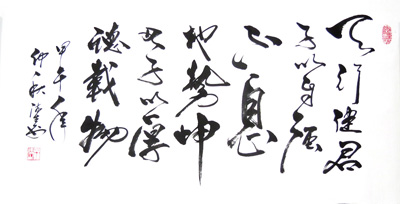 天行健君
子以自强
不息
地勢坤
君子以厚
德載物
甲午年
仲秋